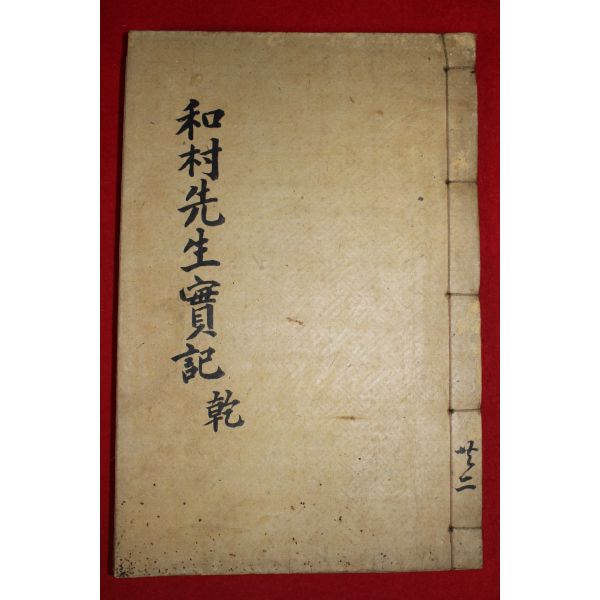 和村先生實記
乾
共二